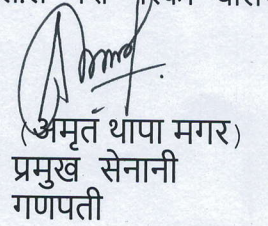 (अमृत थापा मगर)
प्रमुख सेनानी
गणपती